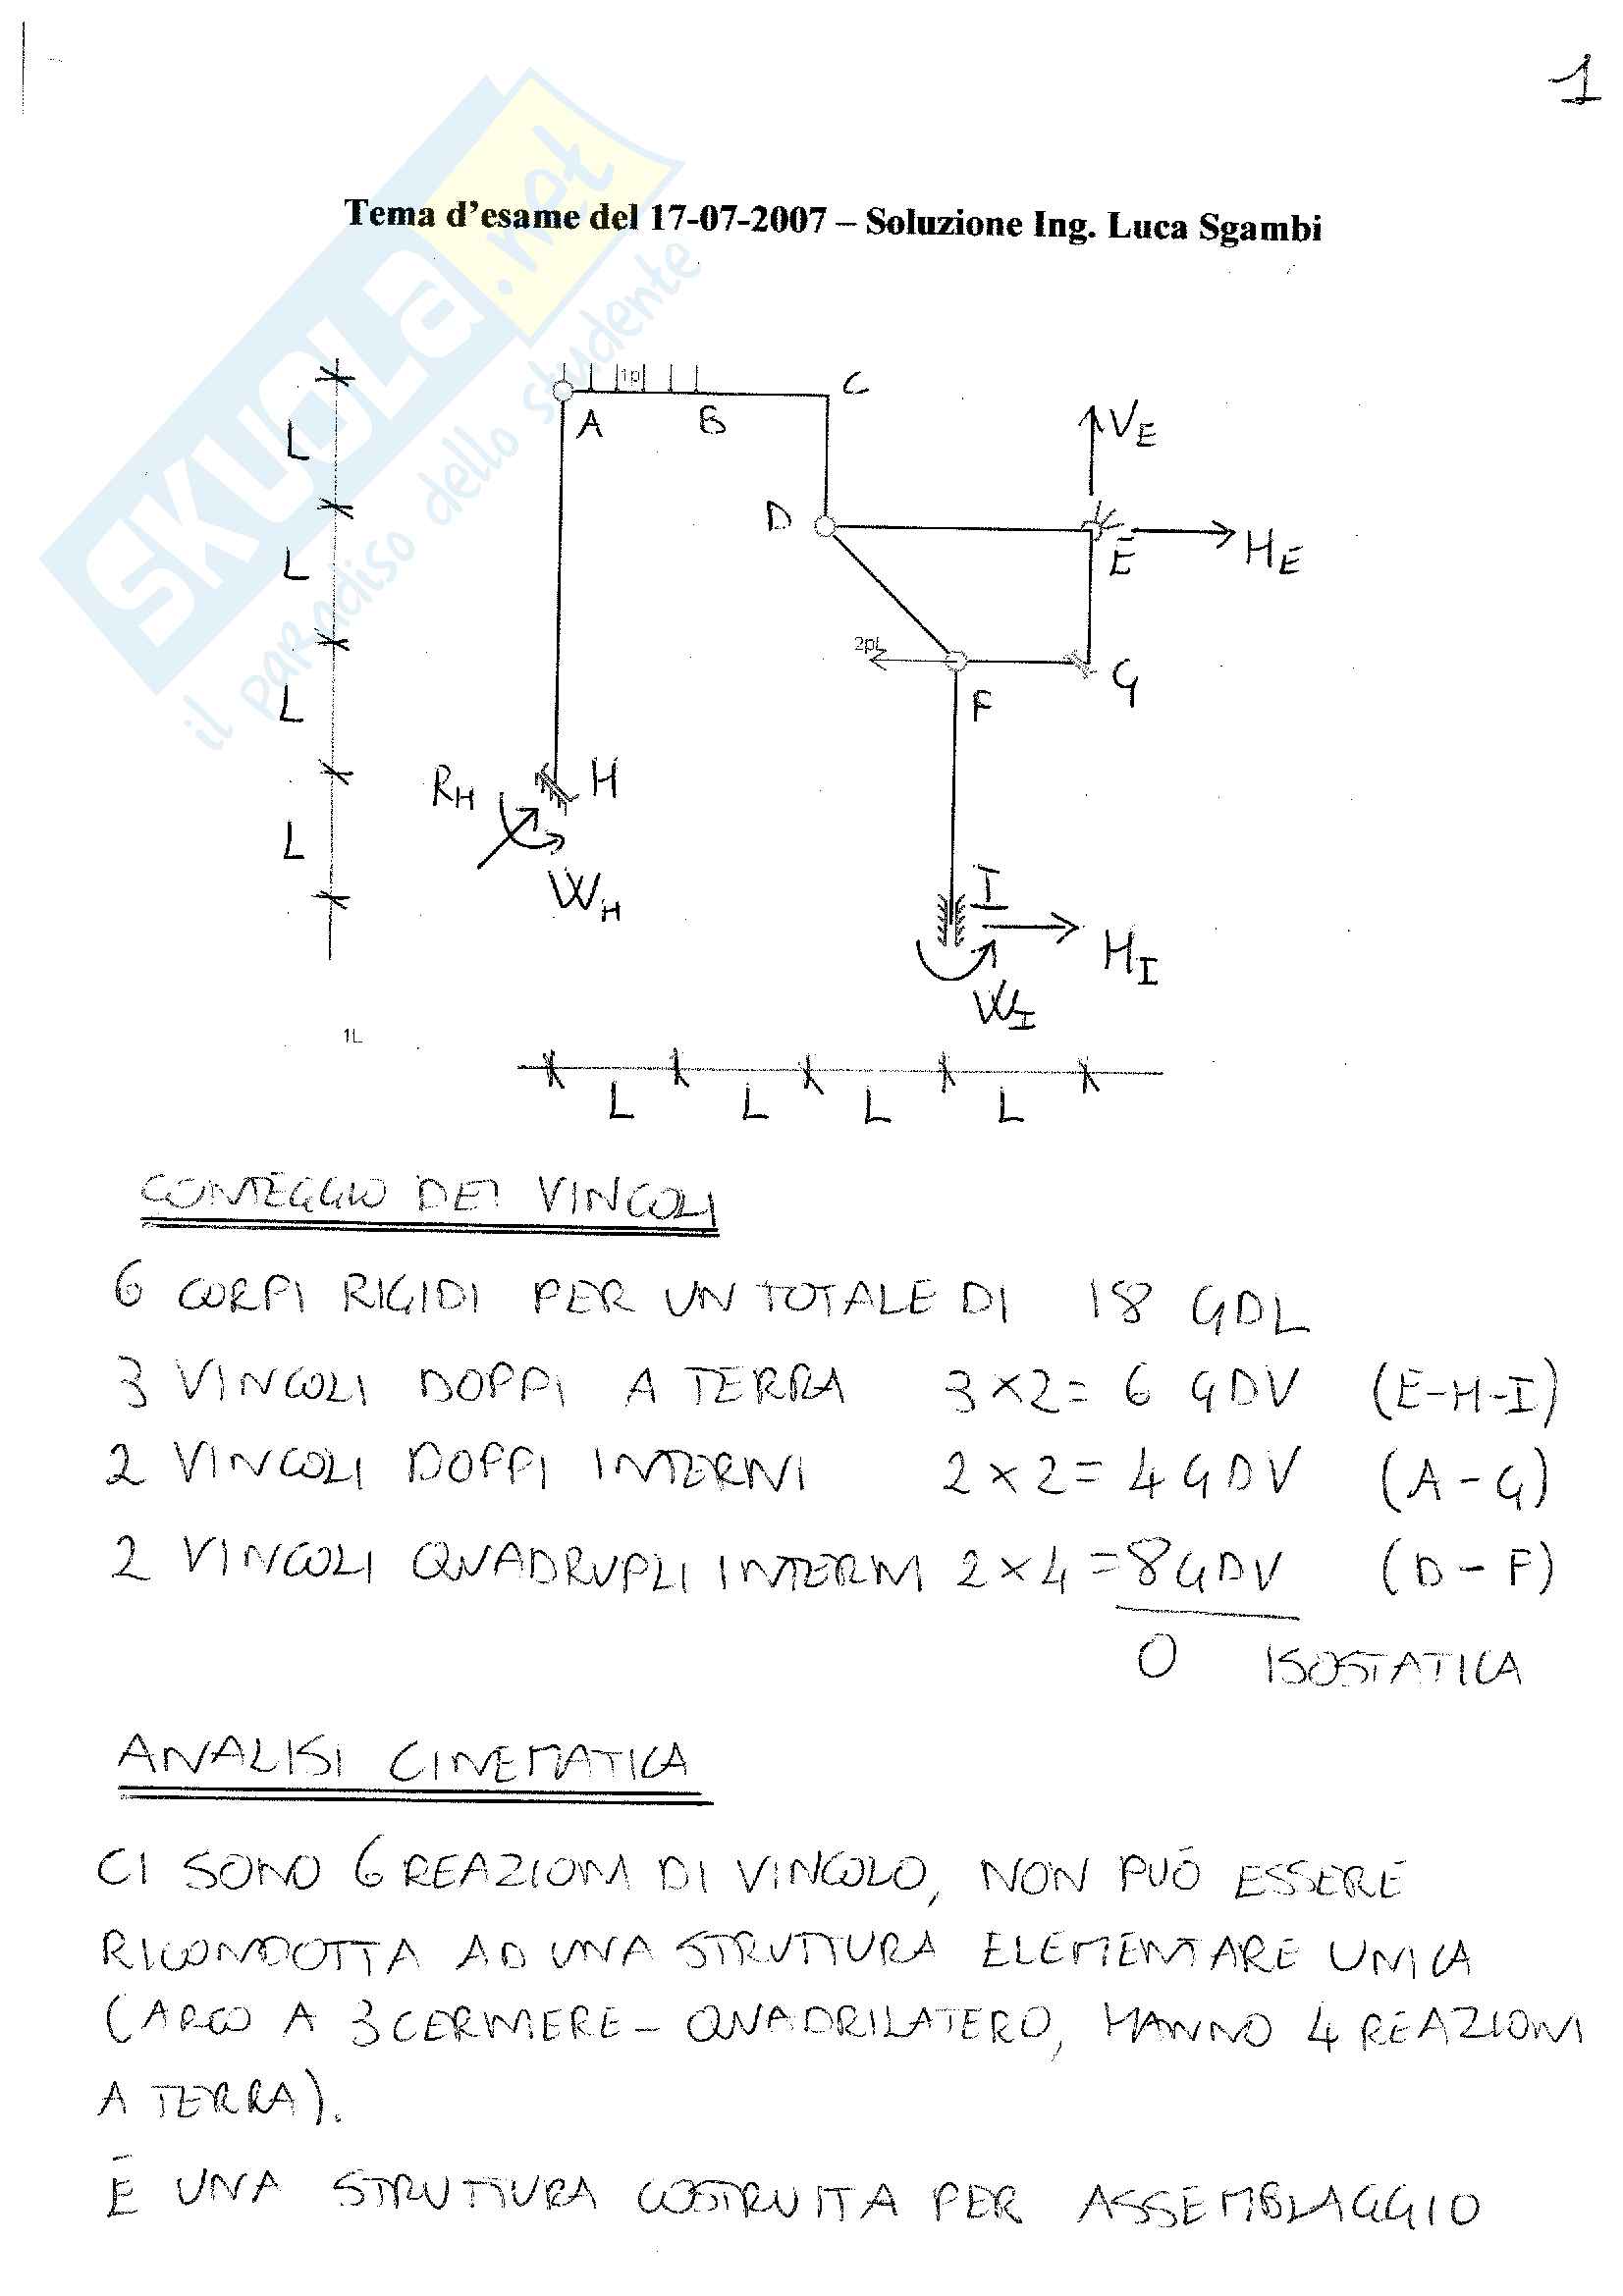 1
Tema d'esame del 17-07-2007 – Soluzione Ing. Luca Sgambi
SKUOLA.net
il paradiso dello studente
1p
A
B
C
L
VE
D
E
HE
L
2pL
F
G
L
RH
H
L
WH
I
HI
WI
1L
L L L L
CONTEGGIO DEI VINCOLI
6 CORPI RIGIDI PER UN TOTALE DI 18 GDL
3 VINCOLI DOPPI A TERRA 3×2= 6 GDV (E-H-I)
2 VINCOLI DOPPI INTERNI 2×2= 4 GDV (A-G)
2 VINCOLI QUADRUPLI INTERNI 2×4=8GDV (D-F)
0 ISOSTATICA
ANALISI CINEMATICA
CI SONO 6 REAZIONI DI VINCOLO, NON PUÒ ESSERE
RICONDOTTA AD UNA STRUTTURA ELEMENTARE UNICA
(ARCO A 3 CERNIERE - QUADRILATERO, HANNO 4 REAZIONI
A TERRA).
È UNA STRUTTURA COSTRUITA PER ASSEMBLAGGIO